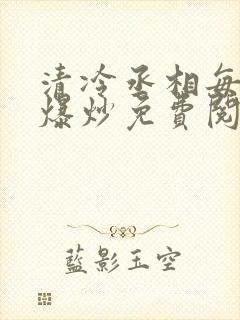 清冷丞相每
爆炒免費閱
藍影玉空